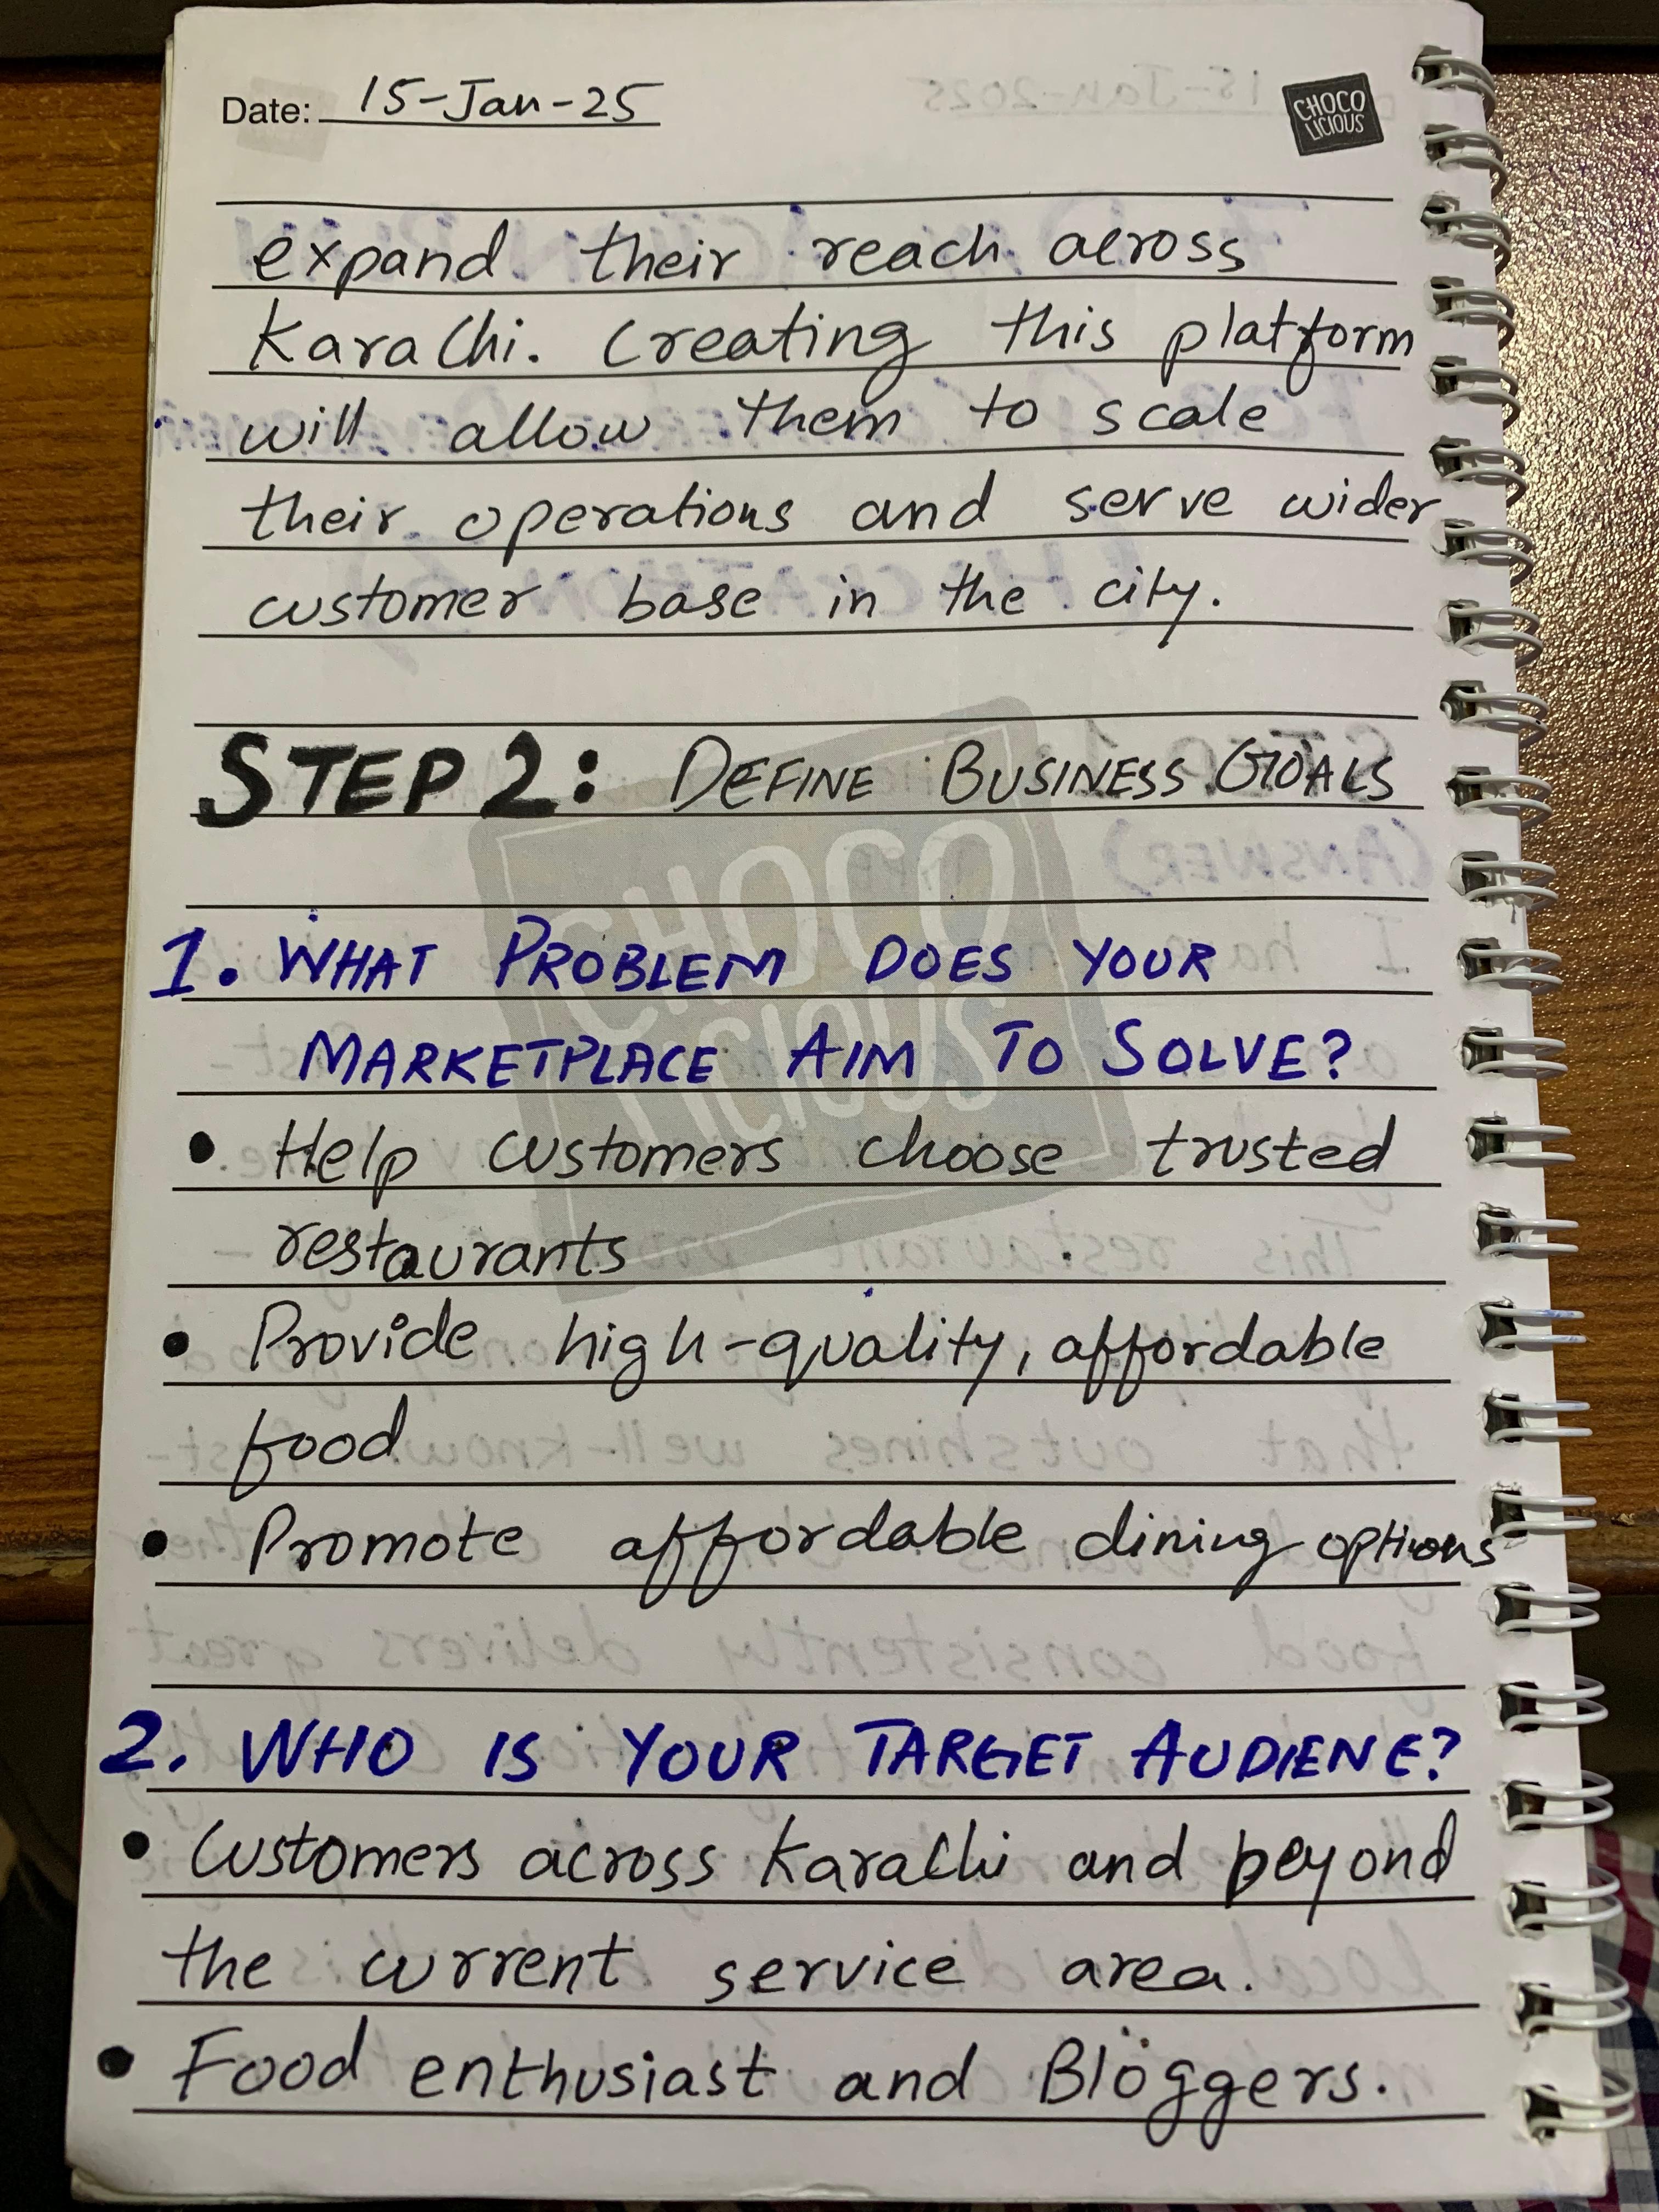 Date: 15-Jan-25
CHOCO
LICIOUS
expand their reach across
Karachi. Creating this platform
will allow them to scale
their operations and serve wider
customer base in the city.
STEP 2: DEFINE BUSINESS GOALS
CHOCO
LICIOUS
1. WHAT PROBLEM DOES YOUR
MARKETPLACE AIM TO SOLVE?
• Help customers choose trusted
restaurants
• Provide high-quality, affordable
food
• Promote affordable dining options
2. WHO IS YOUR TARGET AUDIENE?
• Customers across Karachi and beyond
the current service area.
• Food enthusiast and Bloggers.